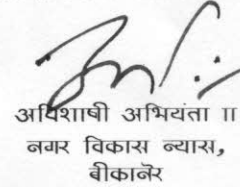 अधिशाषी अभियंता II
नगर विकास न्यास,
बीकानेर